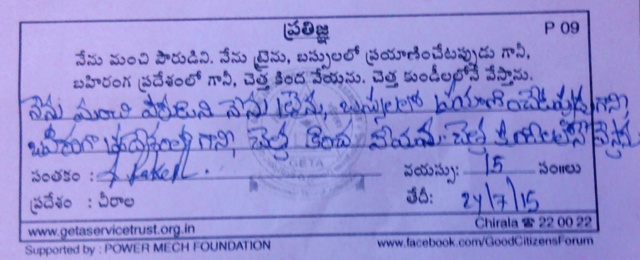 ప్రతిజ్ఞ P 09
నేను మంచి పౌరుడిని. నేను ట్రైను, బస్సులలో ప్రయాణించేటప్పుడు గానీ,
బహిరంగ ప్రదేశంలో గానీ, చెత్త కింద వేయను. చెత్త కుండీలలోనే వేస్తాను.
నేను మంచి పౌరుడిని నేను ట్రైను, బస్సులలో ప్రయాణించేటప్పుడు గాని
బహిరంగ ప్రదేశంలో గాని, చెత్త కింద వేయను. చెత్త కుండీలలోనే వేస్తాను
GETA
సంతకం : వయస్సు: 15 సం॥లు
ప్రదేశం : చీరాల తేదీ: 24/7/15
www.getaservicetrust.org.in Chirala ☎ 22 00 22
Supported by : POWER MECH FOUNDATION www.facebook.com/GoodCitizensForum